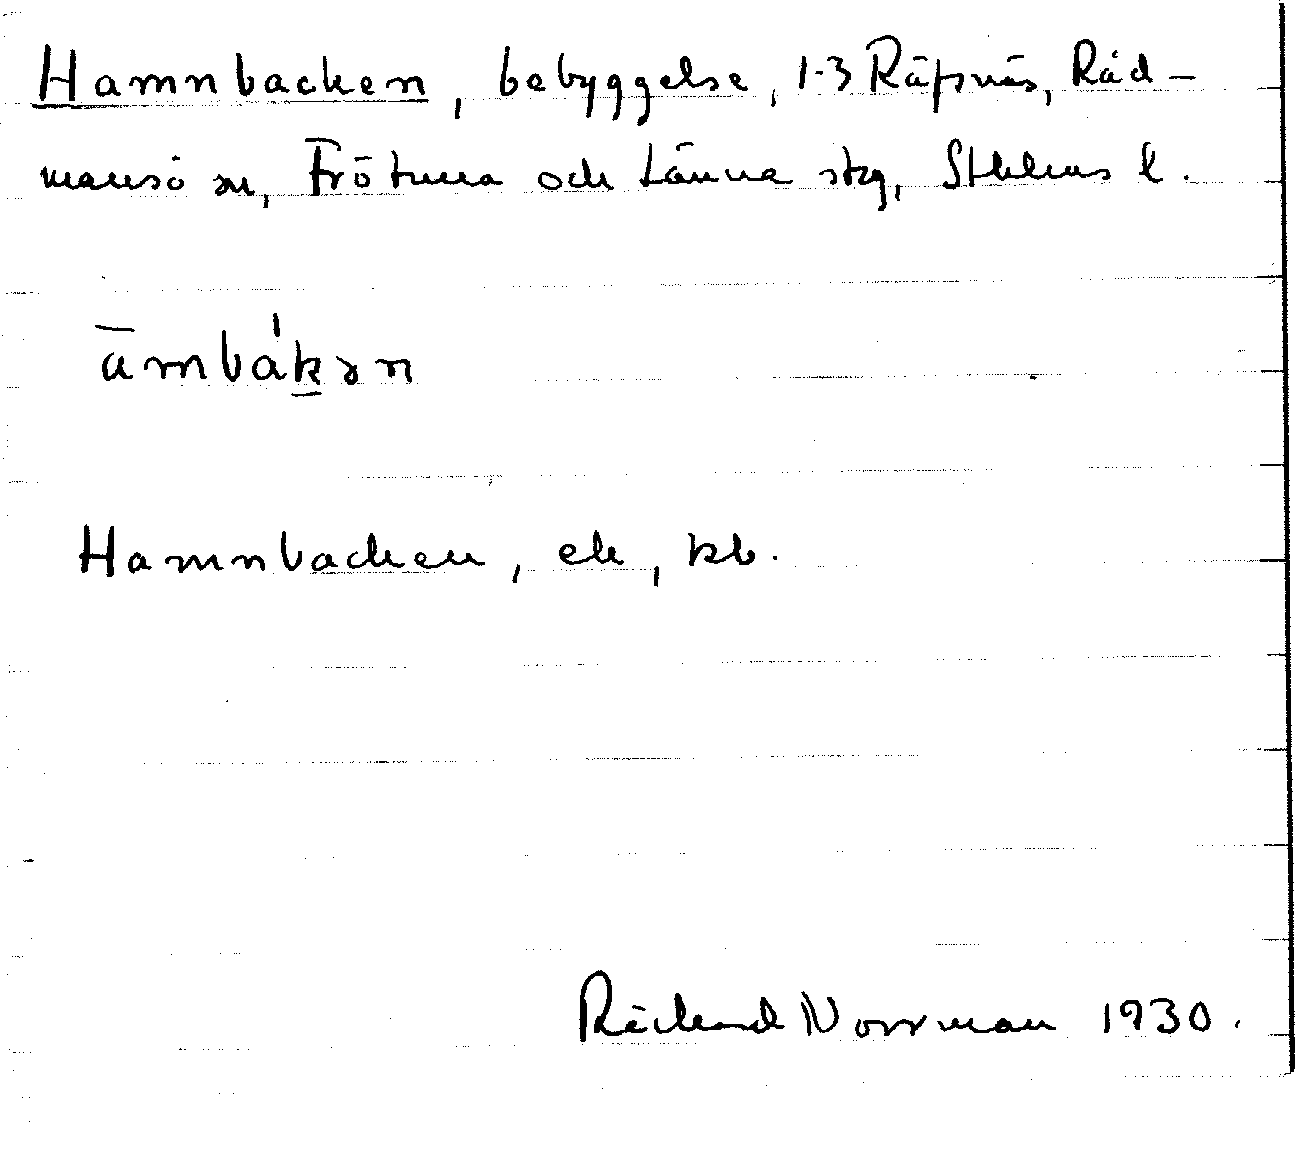 Hamnbacken, bebyggelse, 1-3 Räfsnäs, Råd-
mansö sn, Frötuna och Länna skg, Sthlms l.
āmbákən
Hamnbacken, ek, kb.
Rickard Norrman 1930.